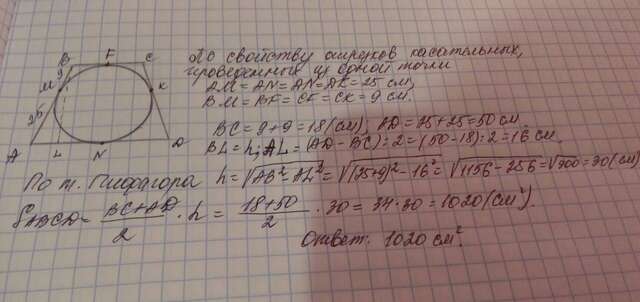 B F C
По свойству отрезков касательных,
9
проведённых из одной точки
M
AM = AN = AN = DK = 25 см,
K
BM = BF = CF = CK = 9 см.
25
BC = 9 + 9 = 18 (см); AD = 25 + 25 = 50 см.
A L N D
BL = h; AL = (AD - BC) : 2 = (50 - 18) : 2 = 16 см.
По т. Пифагора h = √AB² - AL² = √(25+9)² - 16² = √1156 - 256 = √900 = 30 (см)
SABCD = BC + AD / 2 · h = 18 + 50 / 2 · 30 = 34 · 30 = 1020 (см²).
Ответ: 1020 см².